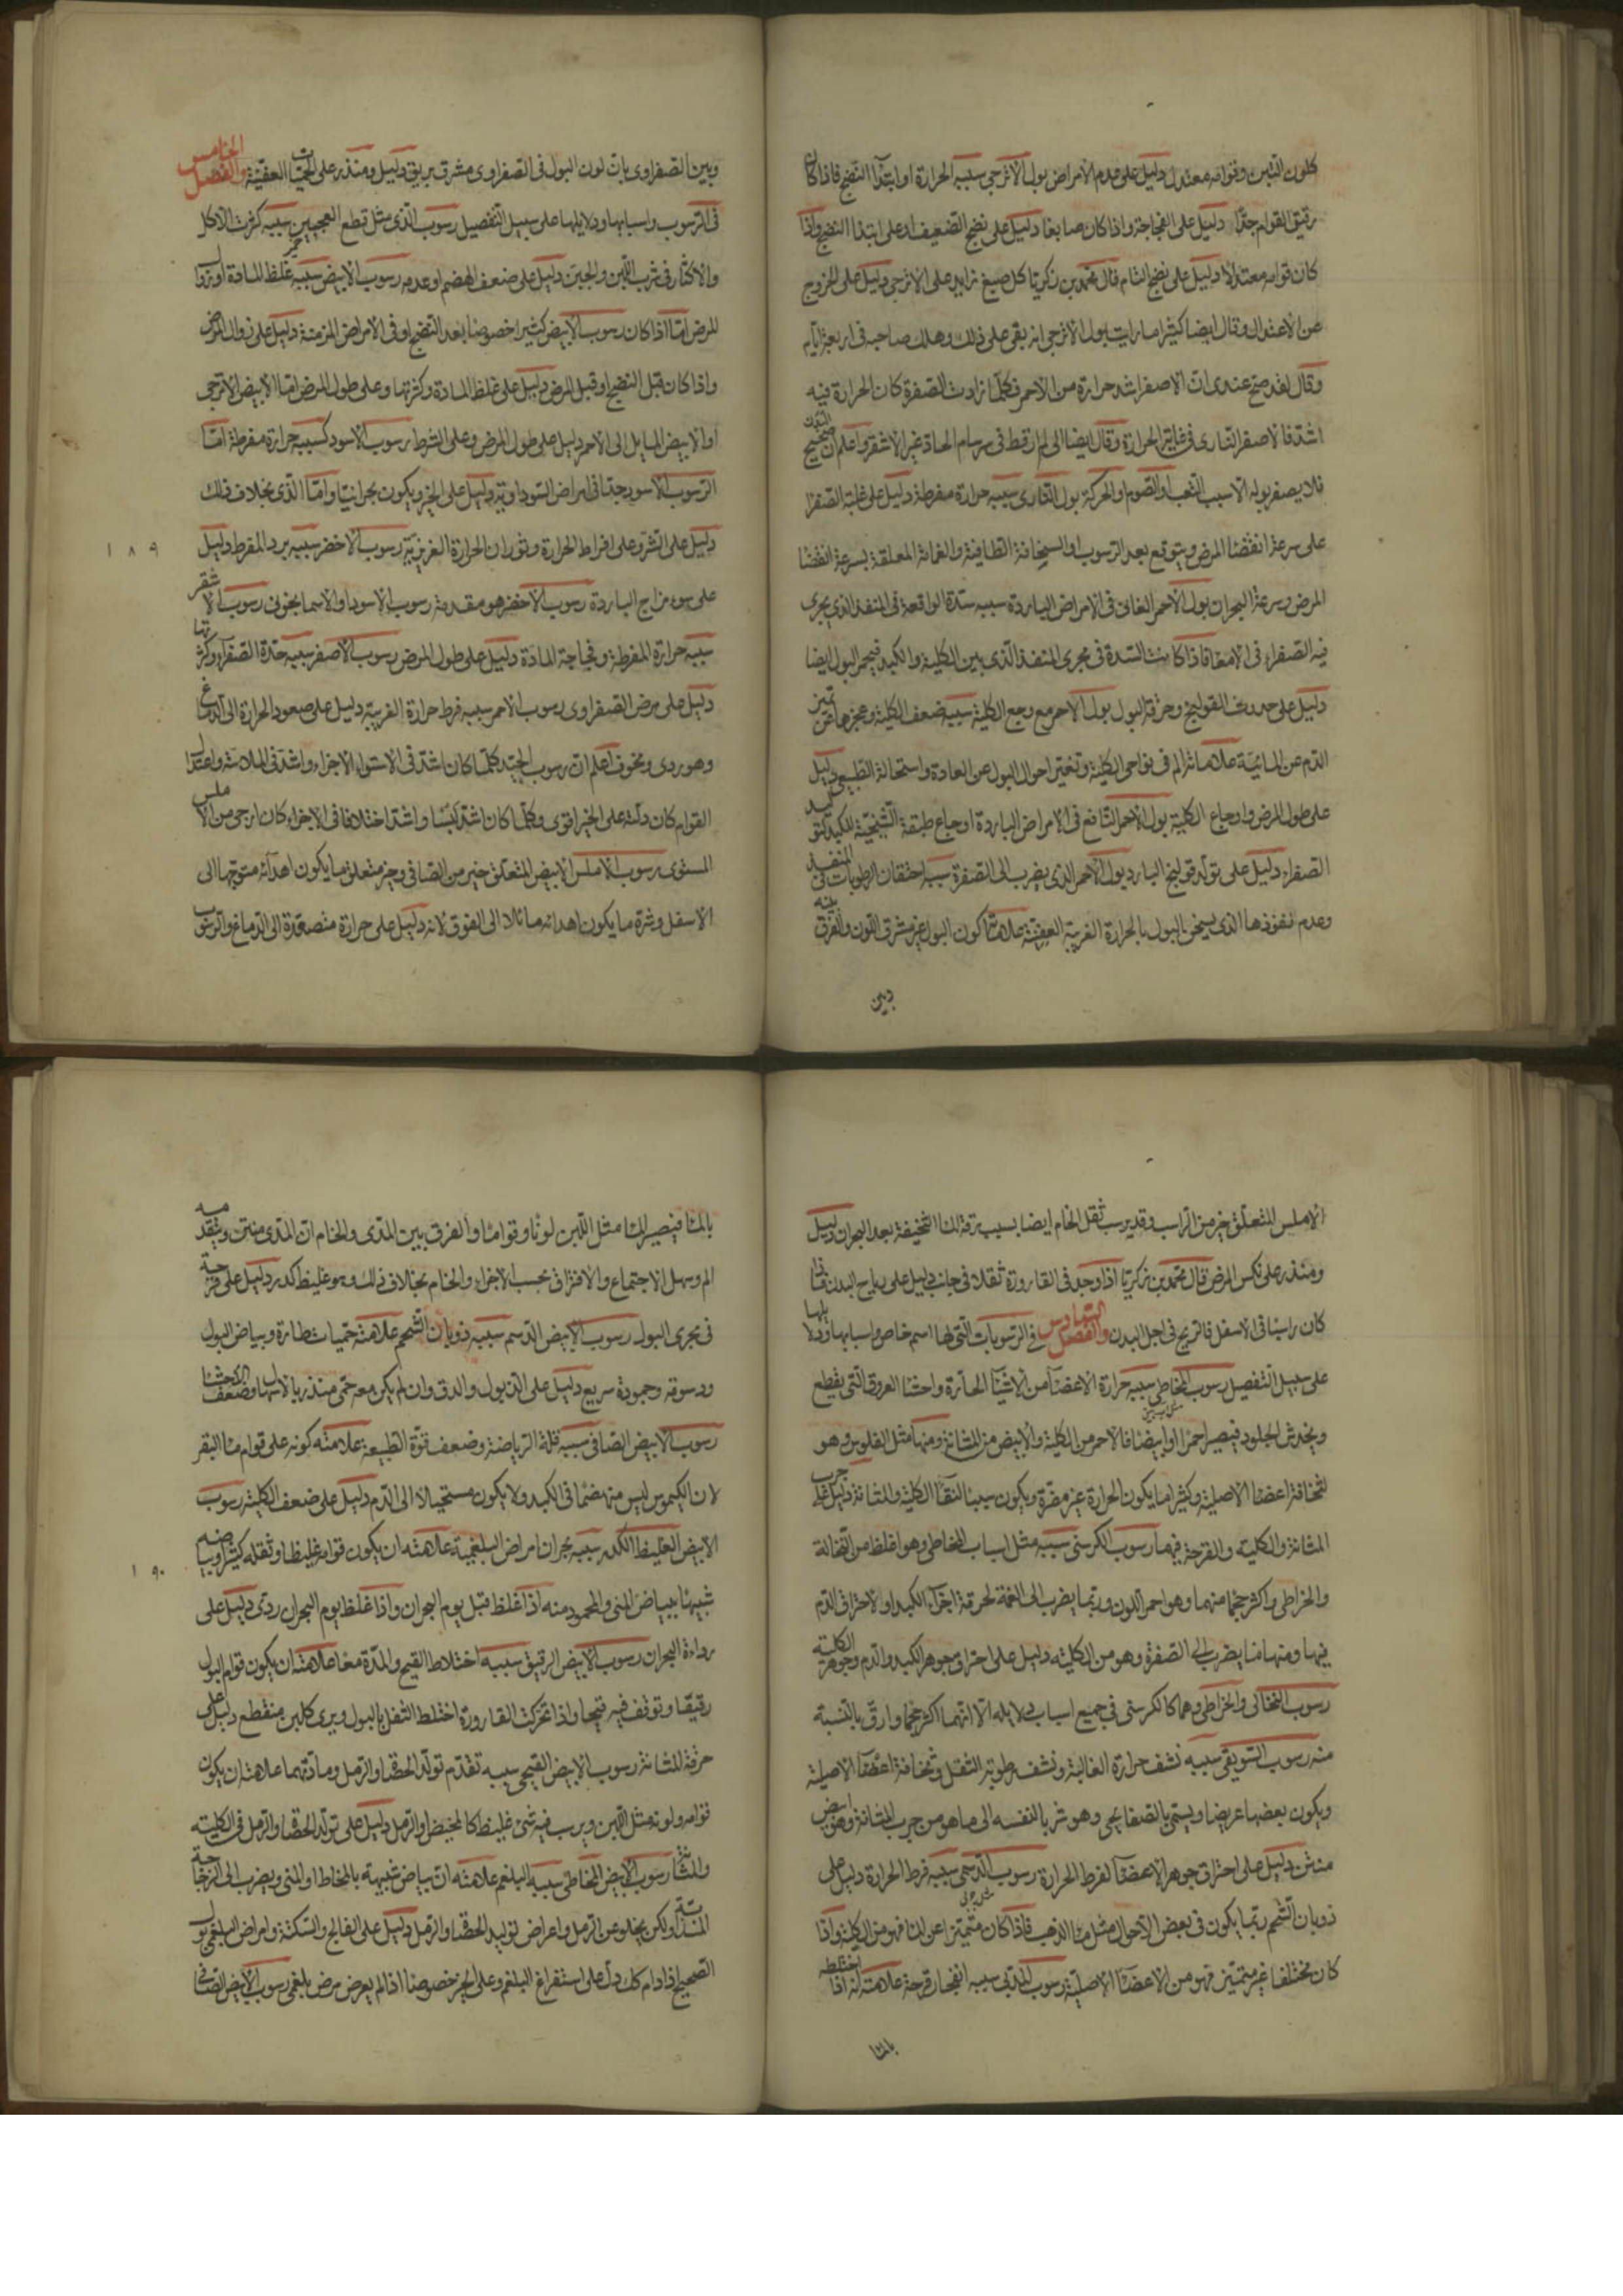 كلون التبن وقوامه معتدل دليل على عدم الامراض بول الاترجي سببه الحرارة او ابتدآ النضج فاذا كان
رقيق القوام جدّا دليل على الفجاجة واذا كان صابغا دليل على نضج الضعيف او على ابتدا النضج واذا
كان قوامه معتدلا دليل على نضج التام قال محمد بن زكريا كل صبغ زايد على الاترجي دليل على الخروج
عن الاعتدال وقال ايضا كثيرا ما رايت بول الاترجي انه بقى على ذلك وهلك صاحبه فى اربعة ايام
وقال لقد صح عندى ان الاصفر اشد حرارة من الاحمر فكلما زادت الصفرة كان الحرارة فيه
اشد فالاصفر النارى فى غاية الحرارة وقال ايضا انى لم ار قط فى سرسام الحادة غير الاشقر واعلم ان صحيح البدن
فلا يصفر بوله الا لسبب التعب او الصوم او الحركة بول النارى سببه حرارة مفرطة دليل على غلبة الصفرا
على سرعة انقضا المرض ويتوقع بعد الرسوب او السخانة الطافية والغمامة المعلقة بسرعة انقضا
المرض وسرعة البحران بول الأحمر القانى فى الامراض الباردة سببه سدّة الواقعة فى المنفذ الذى يجرى
فيه الصفراء فى الامعا فاذا كانت السّدة فى مجرى المنفذ الذى بين الكلية والكبد فيحمر البول ايضا
دليل على حدوث القولنج وحرقة البول بول الاحمر مع وجع الكلية سببه ضعف الكلية وعجزها عن تميز
الدم عن المائية علاماته الم فى نواحى الكلية وتغير احوال البول عن العادة واستحالة الطبيعى دليل
على طول المرض واوجاع الكلية بول الاحمر الناصع فى الامراض الباردة اوجاع طبقة الشبكية للكبد لتوليد
الصفراء دليل على تولد قولنج البارد بول الاحمر الذى يضرب الى الصفرة سببه احتقان الرطوبات فى المنفذ
وعدم نفوذها الذى يسخن البول بالحرارة الغريبة العفنية علامتها كون البول غير مشرق اللون والفرق بينه
وبين
وبين الصفراوى بان لون البول فى الصفراوى مشرق بريق دليل ومنذر على الحميات العفنية والفصل الخامس
فى الرسوب واسبابها ودلايلها على سبيل التفصيل رسوب الذى مثل قطع العجين سببه كثرت الاكل
والاكثار فى شرب اللبن والجبن دليل على ضعف الهضم او عدمه رسوب الابيض سببه غلظ المادة او زوال
المرض امّا اذا كان رسوب الابيض كثيرا خصوصا بعد النضج او فى الامراض المزمنة دليل على زوال المرض
واذا كان قبل النضج او قبل المرض دليل على غلظ المادة وكثرتها وعلى طول المرض امّا الابيض الاترجى
او الابيض المايل الى الاحمر دليل على طول المرض وعلى الشر رسوب الاسود كسببه حرارة مفرطة امّا
الرسوب الاسود جدّا فى امراض السوداوية دليل على الخير ويكون بحرانيّا وامّا الذى بخلاف ذلك
دليل على الشر وعلى افراط الحرارة وثوران الحرارة الغريزية رسوب الاخضر سببه برد المفرط دليل
على سوء مزاج الباردة رسوب الاخضر هو مقدمة رسوب الاسود او الاسمانجونى رسوب الاشقر
سببه حرارة المفرطة وفجاجة المادة دليل على طول المرض رسوب الاصفر سببه حدّة الصفراء وكثرتها
دليل على مرض الصفراوى رسوب الاحمر سببه فرط حرارة الغريبة دليل على صعود الحرارة الى الدماغ
وهو ردى ومخوف اعلم ان رسوب الجيد كلما كان اشد فى الاستواء الاجزاء واشد فى الملاسة واعتدال
القوام كان دالّة على الخير اقوى وكلما كان اشد يبسا واشد اختلافا فى الاجزاء كان ارجى من الاملس
المستوى رسوب الاملس الابيض المتعلق خير من الصافى وخير متعلق ما يكون اهدابه متوجها الى
الاسفل وشره ما يكون اهدابه مائلا الى الفوق لانه دليل على حرارة متصعدة الى الدماغ والرسوب
١٨٩
الاملس المتعلق خير من الراسب وقد يرسب ثقل الخام ايضا بسبب رقة الماء الخفيفة بعد البحران دليل
ومنذر على نكس المرض قال محمد بن زكريا اذا وجد فى القارورة ثقلا فى جانب دليل على رياح البدن فاذا
كان راسبا فى الاسفل فالريح فى اجل البدن والفصل السادس فى الرسوبات التى لها اسم خاص واسبابها ودلايلها
على سبيل التفصيل رسوب الخراطى سببه حرارة الاعضا من الاشيا الحادّة واحشا العروق التى يقطع
ويخدش الجلود فيصير احمرا او ابيضا فالاحمر من الكلية والابيض من المثانة ومنها مثل الفلوس وهو
لثخانة اعضا الاصلية وكثيرا ما يكون الحرارة غير مفرة ويكون سببا النقا الكلية والمثانة دليل على جرب
المثانة والكلية والقرحة فيهما رسوب الكرسنى سببه مثل اسباب الخاطى وهو اغلظ من النخالة
والخراطى واكثر حجما منهما وهو احمر اللون وربما يضرب الى الغمة لحرقة اجزآء الكبد او لاحتراق الدم
فيها ومنها ما يضرب الى الصفرة وهو من الكلية دليل على احتراق جوهر الكبد والدم وجوهر الكلية
رسوب النخالى والخراطى وهما كالكرسنى فى جميع اسباب دلايله الّا انهما اكثر حجما وارق بالنسبة
منه رسوب السويقى سببه نشف حرارة الغالبة ونشف رطوبة الثقل وثخانة اعضا الاصلية
ويكون بعضها عريضا ويسمى بالصفايحى وهو شر بالنفسه الى ما هو من جرب المثانة وهو ابيض
منتن دليل على احتراق جوهر الاعضا لفرط الحرارة رسوب الدسمى سببه فرط الحرارة دليل على
ذوبان الشحم ربما يكون فى بعض الاحوال مثل ماء الذهب فاذا كان متميزا عن الماء فهو من الكلية واذا
كان مختلفا غير متميز فهو من الاعضا الاصلية رسوب المدى سببه انفجار قرحة علامته انه اذا اختلط
بالما
بالماء فيصير الماء مثل اللبن لونا وقواما والفرق بين المدى والخام ان المدى منتن ويتقدمه
الم وسهل الاجتماع والافتراق بحسب الاجزاء والخام بخلاف ذلك وهو غليظ كدر دليل على قرحة
فى مجرى البول رسوب الابيض الدسم سببه ذوبان الشحم علامته حميات طارة وبياض البول
ودسومة وجمودة سريع دليل على الذبول والدق وان لم يكن معه حمى منذر بالاسهال وضعف الاحشا
رسوب الابيض الصافى سببه قلة الرياضة وضعف قوة الطبيعة علامته كونه على قوام ماء البقر
لان الكيموس ليس منهضما فى الكبد ولا يكون مستحيلا الى الدم دليل على ضعف الكلية رسوب
الابيض الغليظ الكدر سببه بحران امراض البلغمية علامته ان يكون قوامه غليظا وثقله كثيرا وبياضه
شبيها ببياض المنى والمحمود منه اذا غلظ قبل يوم البحران واذا غلظ يوم البحران ردى دليل على
رداءة البحران رسوب الابيض الرقيق سببه اختلاط القيح والمدة معا علامته ان يكون قوام البول
رقيقا وتوقف فيه قيحا واذا تحركت القارورة اختلط الثفل بالبول ويرى كلبن منقطع دليل على
حرقة المثانة رسوب الابيض القيحى سببه تقدم تولد الحصا والرمل ومادتهما علامته ان يكون
قوامه ولونه مثل اللبن ويرسب فيه شئ غليظ كالمخيض او الرمل دليل على تولد الحصا والرمل فى الكلية
والمثانة رسوب الابيض المخاطى سببه البلغم علامته ان بياض شبيهه بالمخاط او المنى ويضرب الى الزجاجية
ولكن يخلو عن الرمل واعراض توليد الحصا والرمل دليل على الفالج والسكتة وامراض البلغمى
الصحيح اذا دام كك دلّ على استفراغ البلغم وعلى الخير خصوصا اذا لم يعرض مرض بلغمى رسوب الابيض الصافى
١٩٠